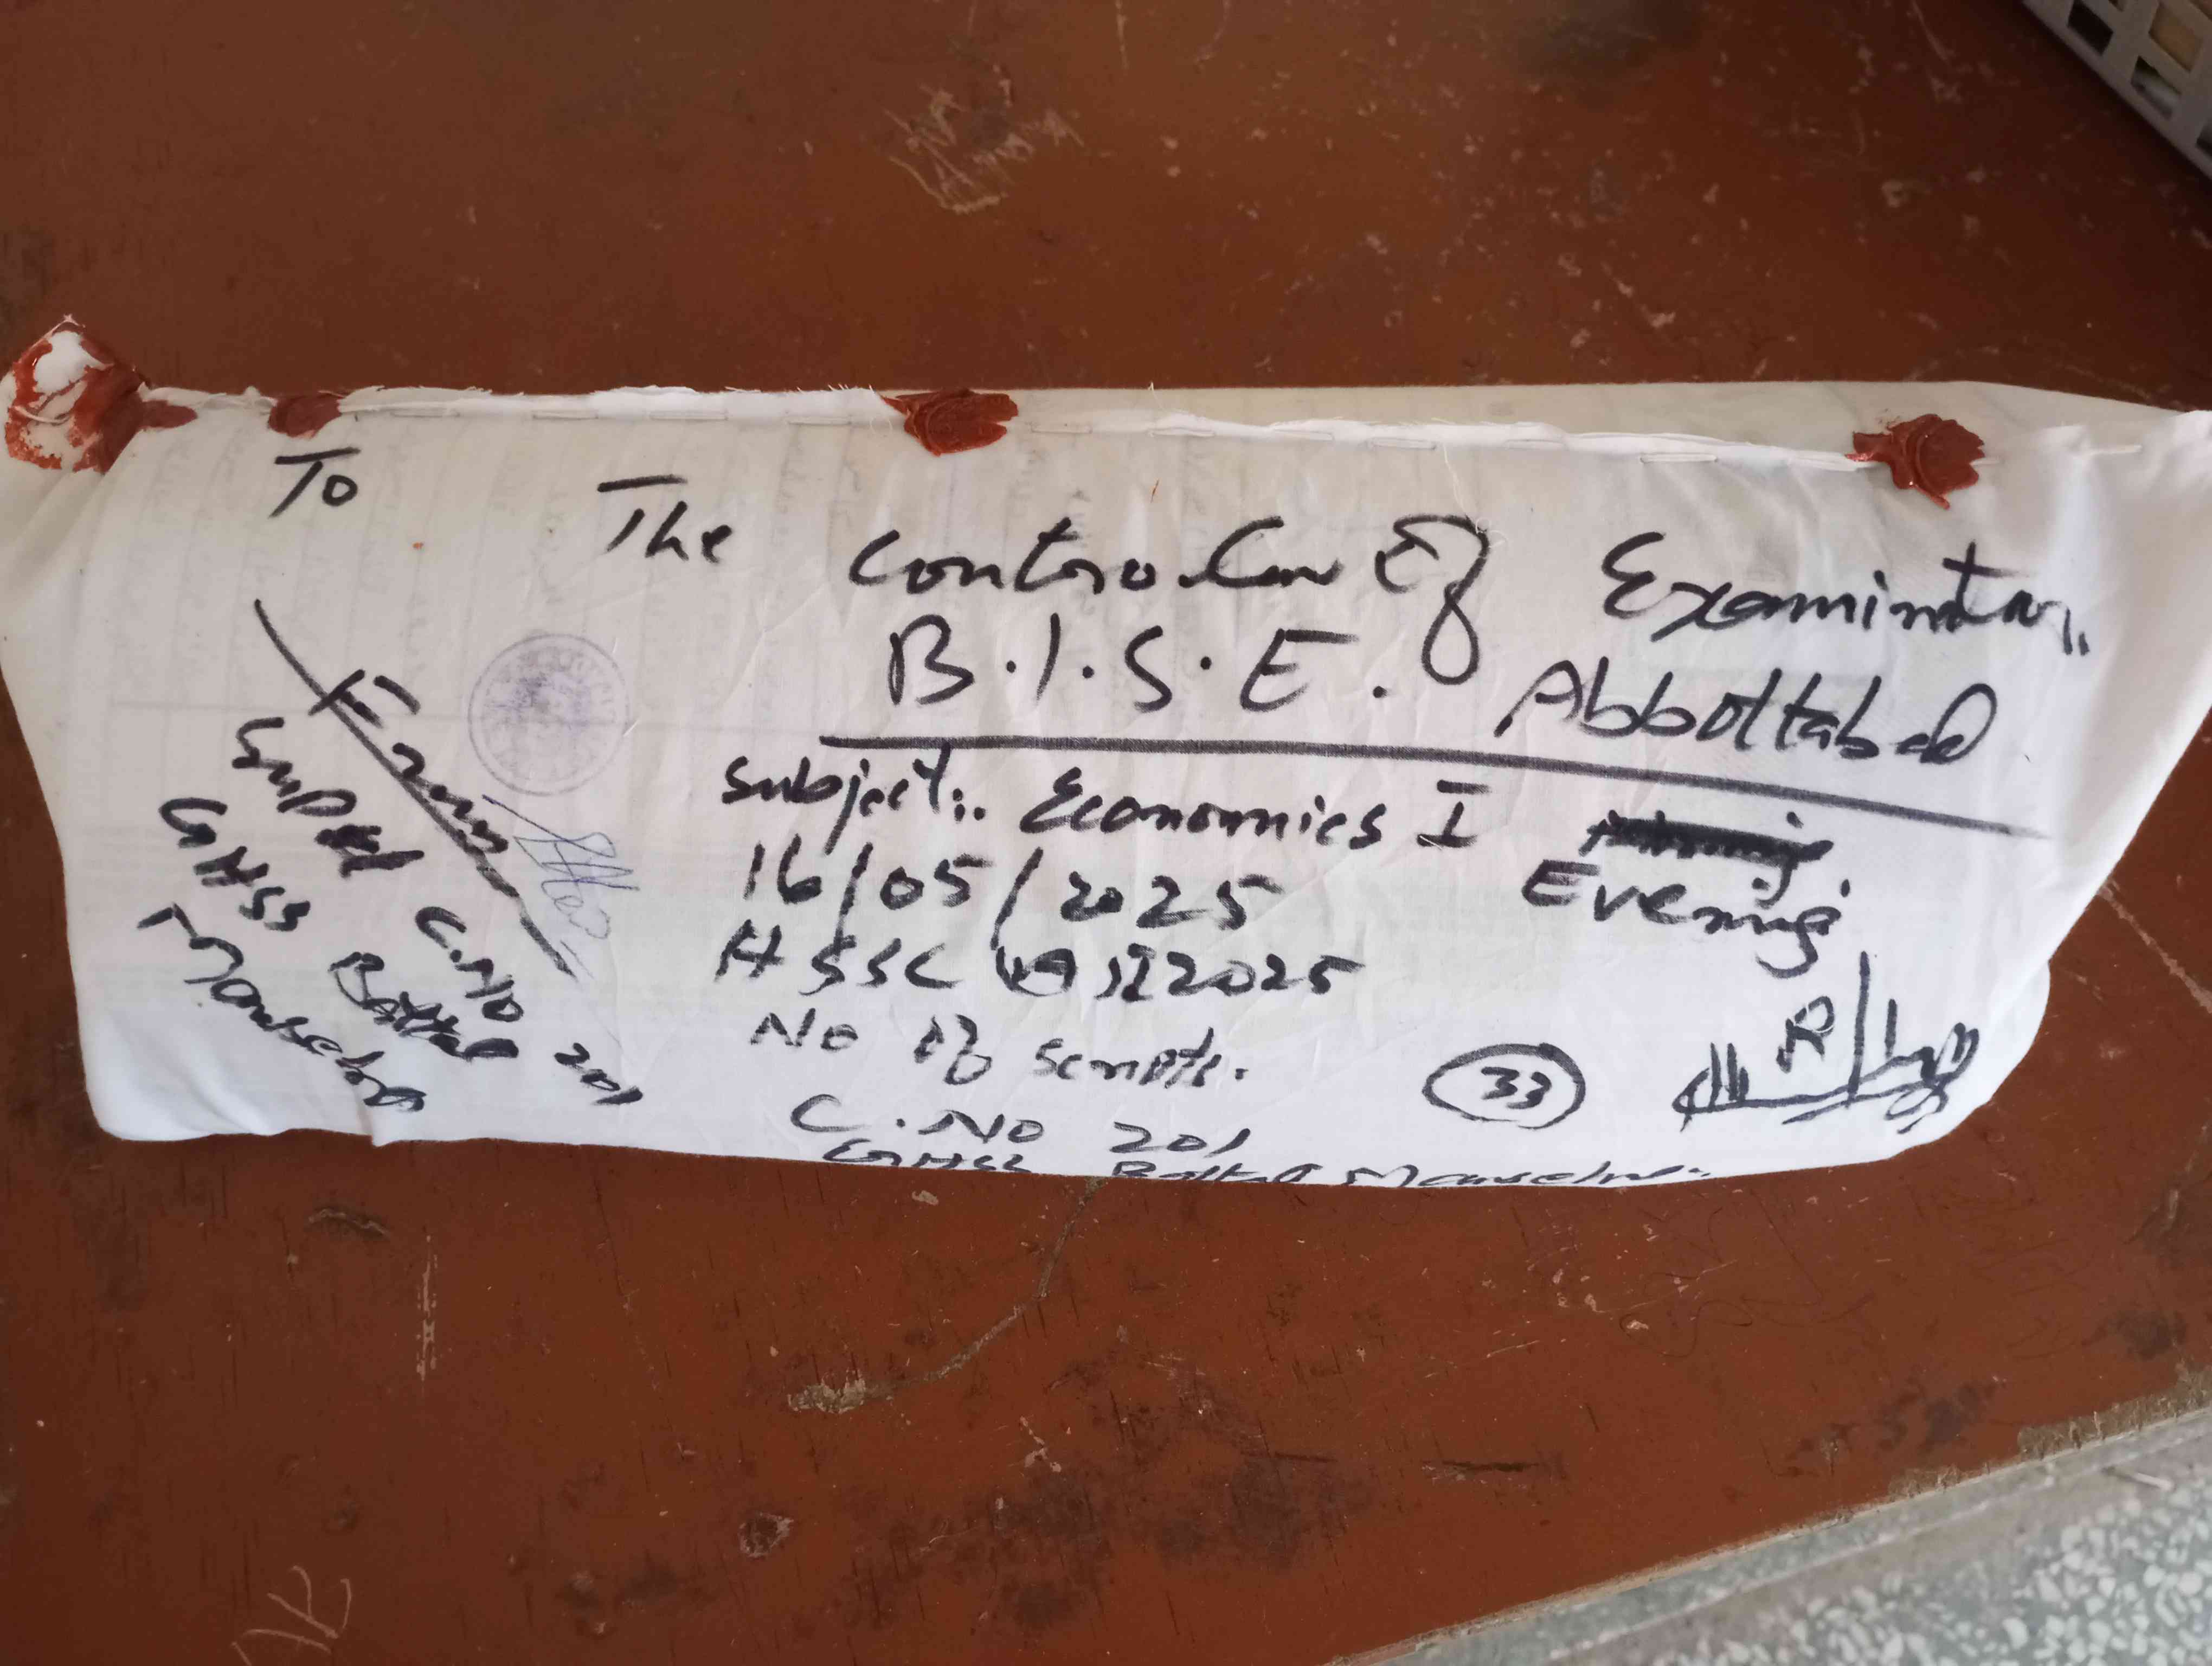 To
The Controller Of Examination
B.I.S.E. Abbottabad
Subject:. Economics I
Evening
16/05/2025
HSSC (A) 2025
No of scripts.
33
C.No 201
GHSS Battal Mansehra
From
Supdt C.No 201
GHSS Battal
Mansehra